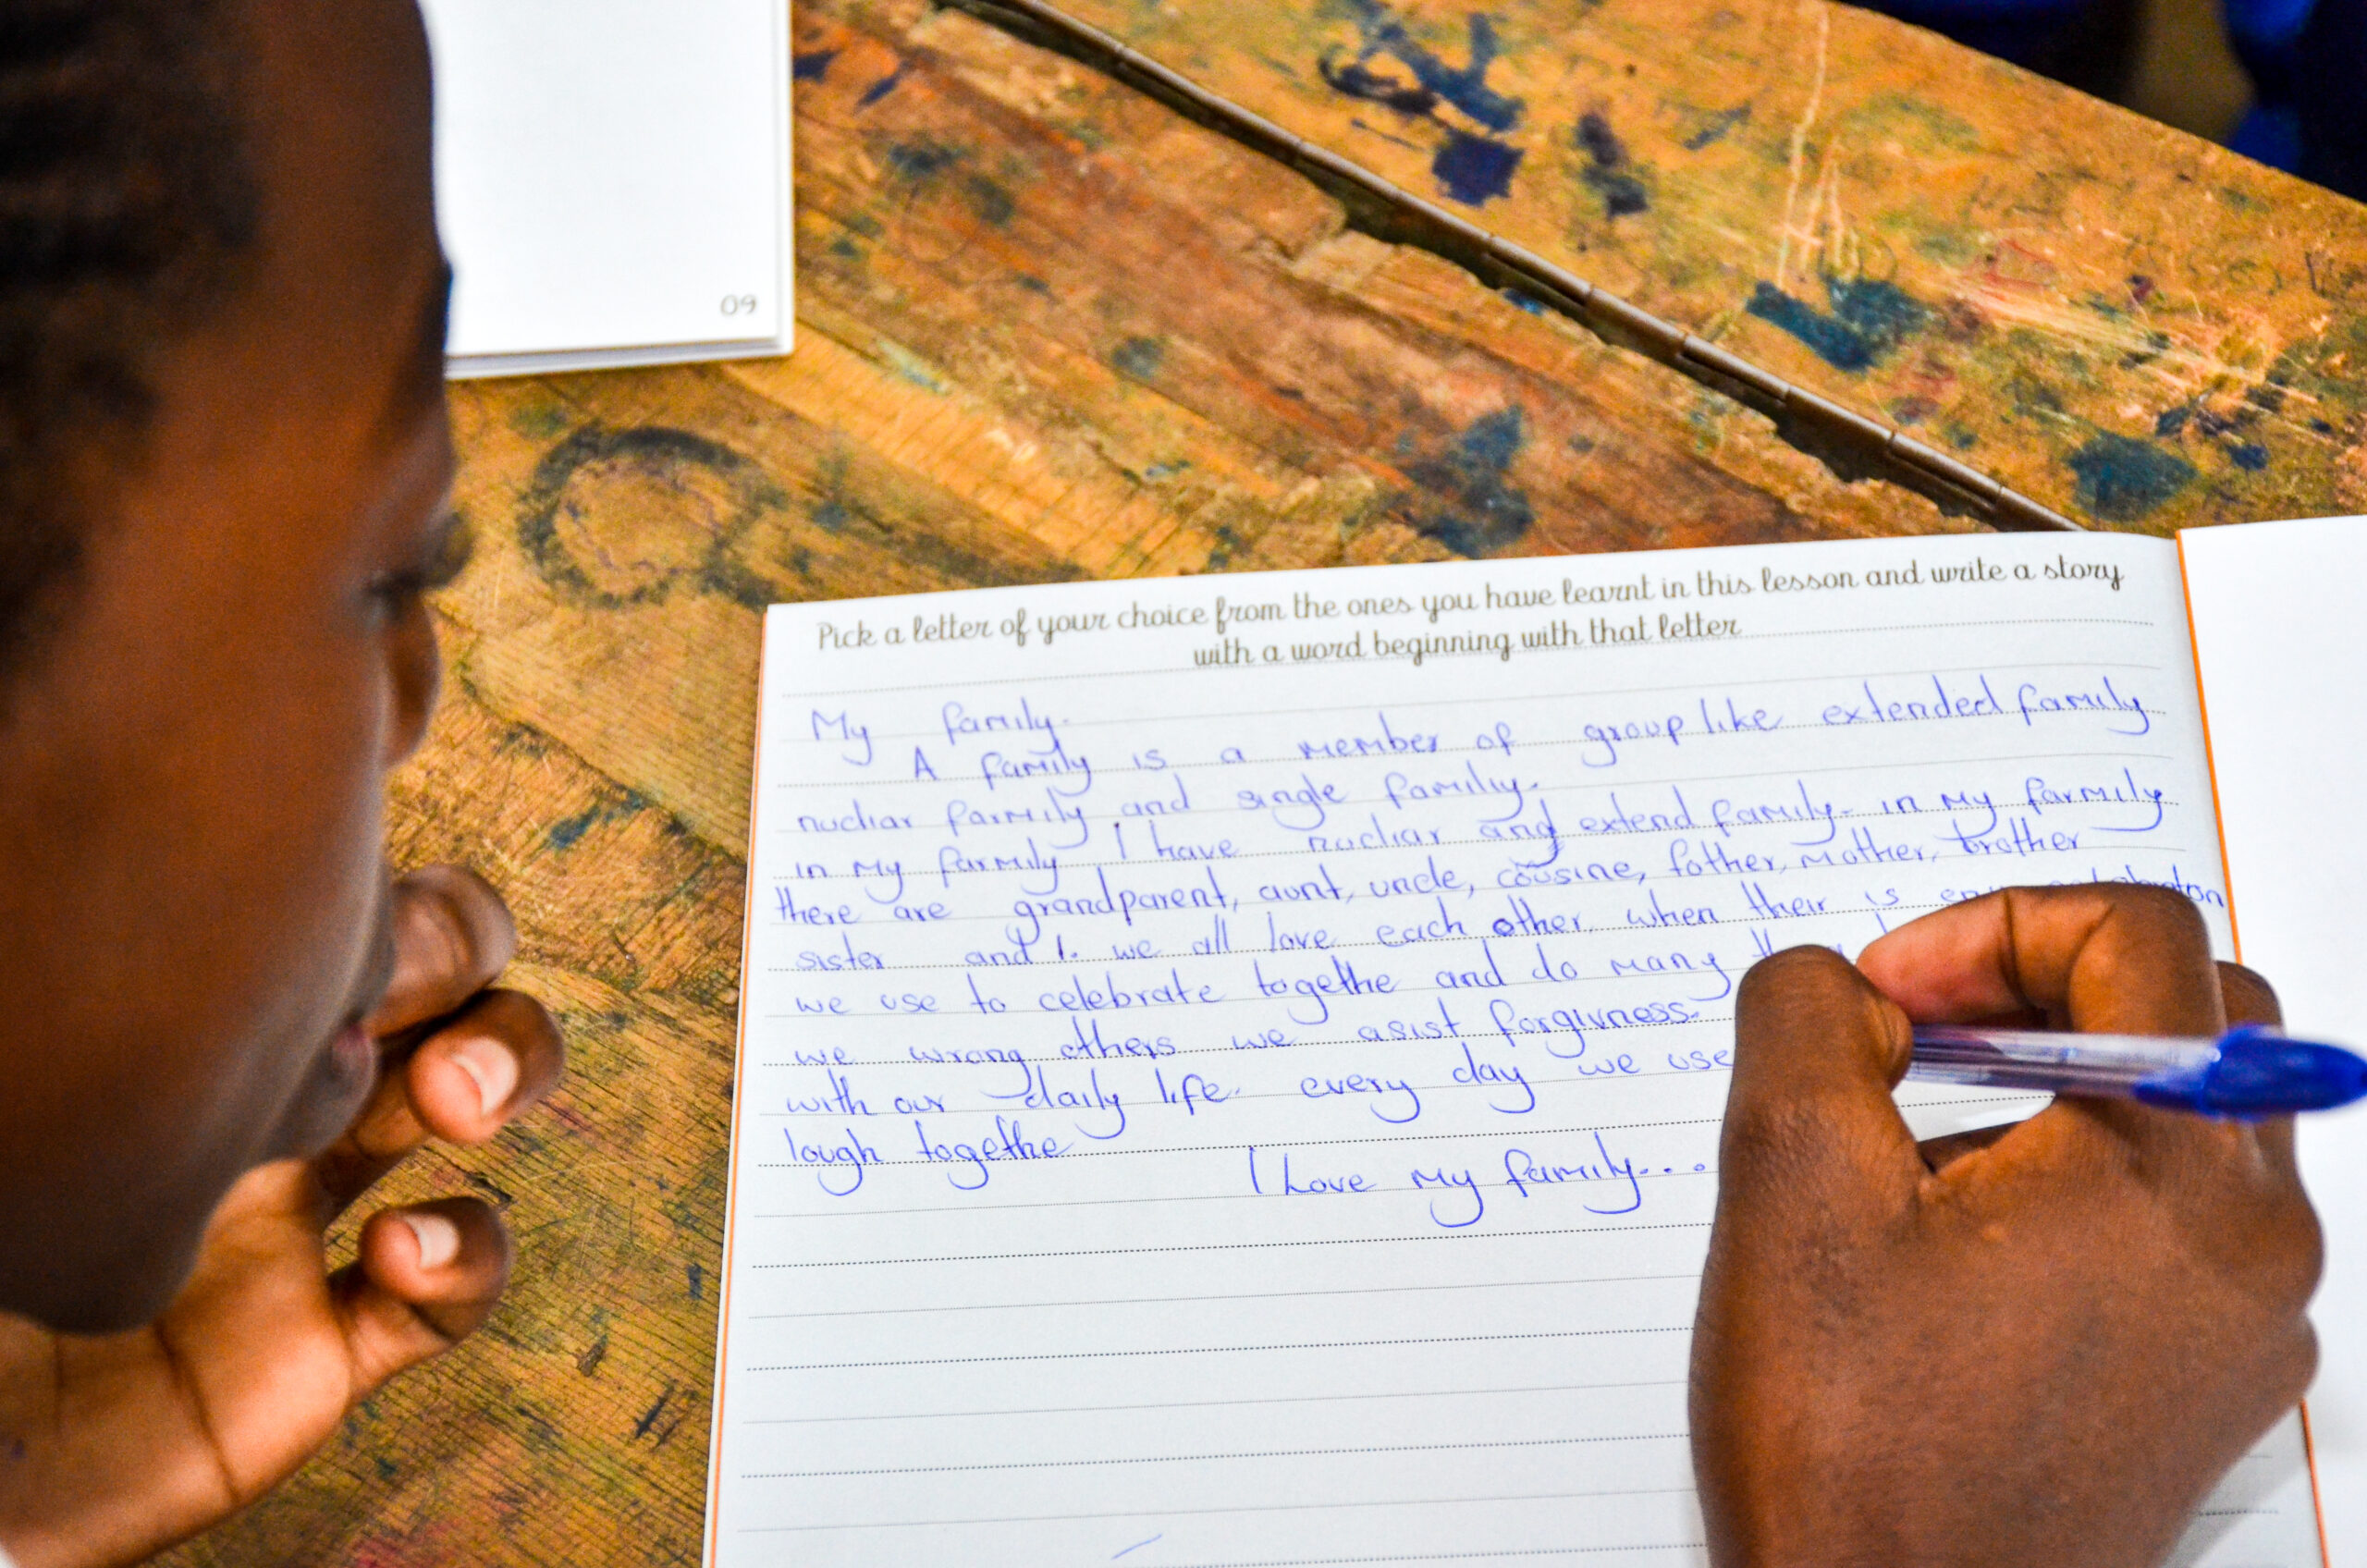 09
Pick a letter of your choice from the ones you have learnt in this lesson and write a story
with a word beginning with that letter
My family.
A family is a member of group like extended family
nucliar farmily and single familiy.
in my farmily I have nucliar and extend family. in my farmily
there are grandparent, aunt, uncle, cousine, father, mother, brother
sister and I. we all love each other. when their is
we use to celebrate togethe and do many
we wrong others we asist forgivness.
with our daily life. every day we use
lough togethe
I Love my family...